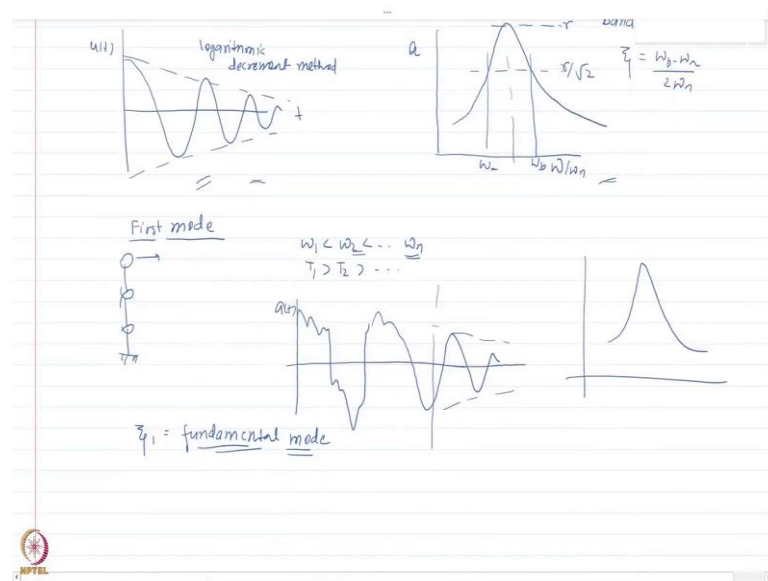 u(t)
logarithmic
decrement method
t
a
r
r/√2
ξ = ωb - ωa
2ωn
ωa
ωb ω/ωn
First mode
ω1 < ω2 < ... ωn
T1 > T2 > ...
a(t)
ξ1 = fundamental mode
NPTEL